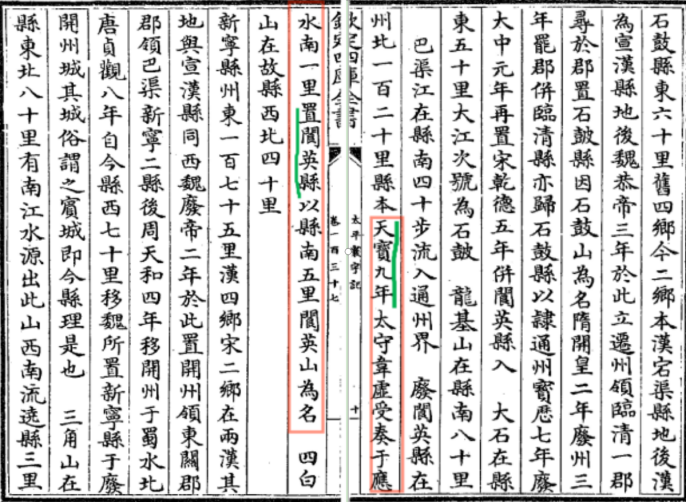 石鼓縣東六十里舊四鄉今二鄉本漢宕渠縣地後漢
為宣漢縣地後魏恭帝三年於此立遷州領臨清一郡
尋於郡置石皷縣因石鼓山為名隋開皇二年廢州三
年罷郡併臨清縣亦歸石鼓縣以隸通州寳厯七年廢
大中元年再置宋乾德五年併閬英縣入 大石在縣
東五十里大江次號為石皷 龍基山在縣南八十里
巴渠江在縣南四十步流入通州界 廢閬英縣在
州北一百二十里縣本天寶九年太守韋虛受奏于應
太平寰宇記 卷一百三十七 十
欽定四庫全書
水南一里置閬英縣以縣南五里閬英山為名 四白
山在故縣西北四十里
新寧縣州東一百七十五里漢四鄉宋二鄉在兩漢其
地與宣漢縣同西魏廢帝二年於此置開州領東關郡
郡領巴渠新寧二縣後周天和四年移開州于蜀水北
唐貞觀八年自今縣西七十里移魏所置新寧縣于廢
開州城其城俗謂之賓城即今縣理是也 三角山在
縣東北八十里有南江水源出此山西南流遶縣三里